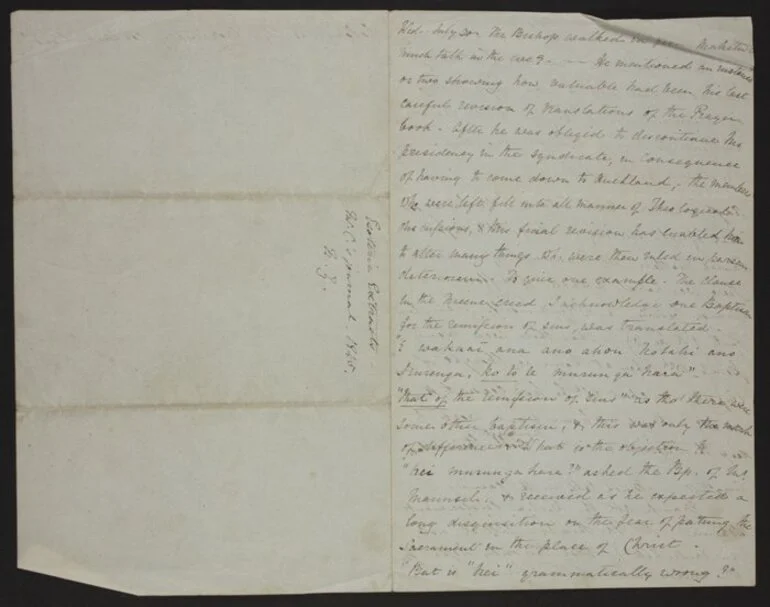 Esoteric Extracts
Mr C's journal. 1845.
Wed. July 30. The Bishop walked in
much talk in the eve'g. — — He mentioned an instance
or two showing how valuable had been his last
careful revision of translations of the Prayer
book. After he was obliged to discontinue his
presidency in the syndicate, in consequence
of having to come down to Auckland, the members
wh. were left fell into all manner of Theological
discussions, & this final revision has enabled him
to alter many things wh. were then ruled in pejam
deteriorem. To give one example. The clause
in the Nicene creed I acknowledge one Baptism
for the remission of sins, was translated.
"E wakaae ana ano ahau kotahi ano
Iriirenga, ko to te murunga hara".
"That of the remission of sins" as tho' there were
some other baptism, & this was only the mark
of difference. What is the objection to
"hei murunga hara?" asked the Bp. of Mr
Maunsell, & received as he expected a
long disquisition on the fear of putting the
Sacrament in the place of Christ.
"But is "hei" grammatically wrong?"